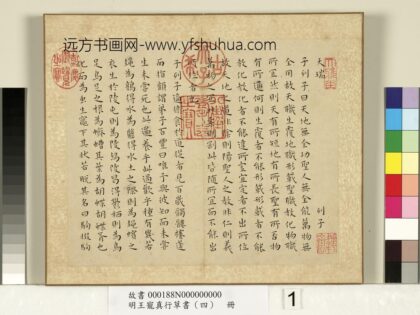 远方书画网-www.yfshuhua.com
天瑞
列子
子列子曰天地無全功聖人無全能萬物無
全用故天職生覆地職形載聖職教化物職
所宜然則天有所短地有所長聖有所否物
有所通何則生覆者不能形載形載者不能
教化教化者不能違所宜宜定者不出所位
故天地之道非陰則陽聖人之教非仁則義
萬物之宜非柔則剛此皆隨所宜而不能出
所位者也
子列子適衛食於道從者見百歲髑髏攓蓬
而指顧謂弟子百豐曰唯予與彼知而未嘗
生未嘗死也此過養乎此過歡乎種有幾若
蠅為鶉得水為得水土之際則為蠙之
衣生於陵屯則為陵舄陵舄得鬱栖則為烏
足烏足之根為蠐螬其葉為胡蝶胡蝶胥也
化而為蟲生竈下其狀若脫其名曰鴝掇鴝掇
故書 000188N000000000
明王寵真行草書（四） 冊
1